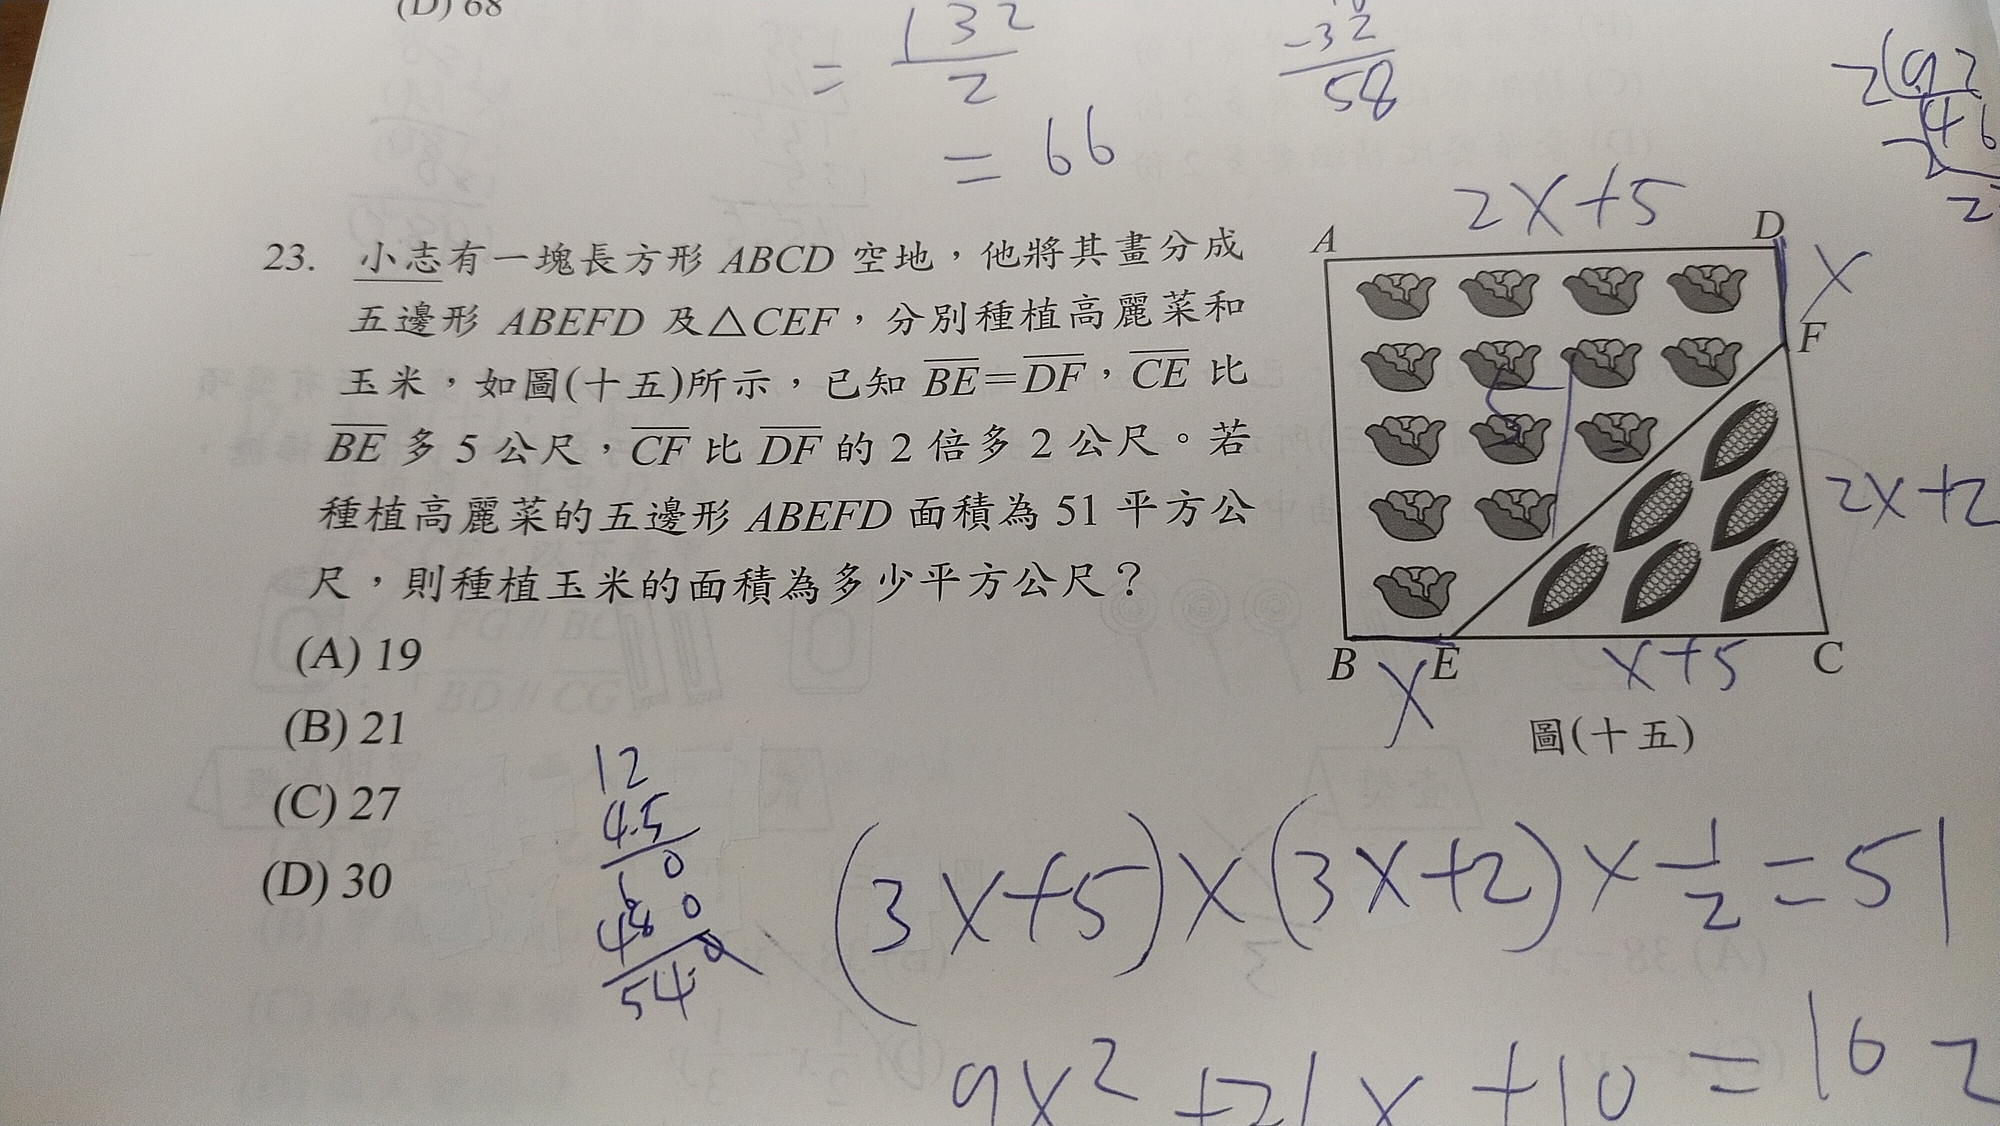 (D) 68
= 132/2
= 66
-32
58
2x+5
23. 小志有一塊長方形 ABCD 空地，他將其畫分成
五邊形 ABEFD 及△CEF，分別種植高麗菜和
玉米，如圖(十五)所示，已知 BE=DF，CE 比
BE 多 5 公尺，CF 比 DF 的 2 倍多 2 公尺。若
種植高麗菜的五邊形 ABEFD 面積為 51 平方公
尺，則種植玉米的面積為多少平方公尺？
(A) 19
(B) 21
(C) 27
(D) 30
A
D
x
F
2x+2
B
E
C
x
x+5
圖(十五)
12
4.5
60
48 0
54.0
(3x+5)×(3x+2)×1/2=51
9x²+21x+10=102